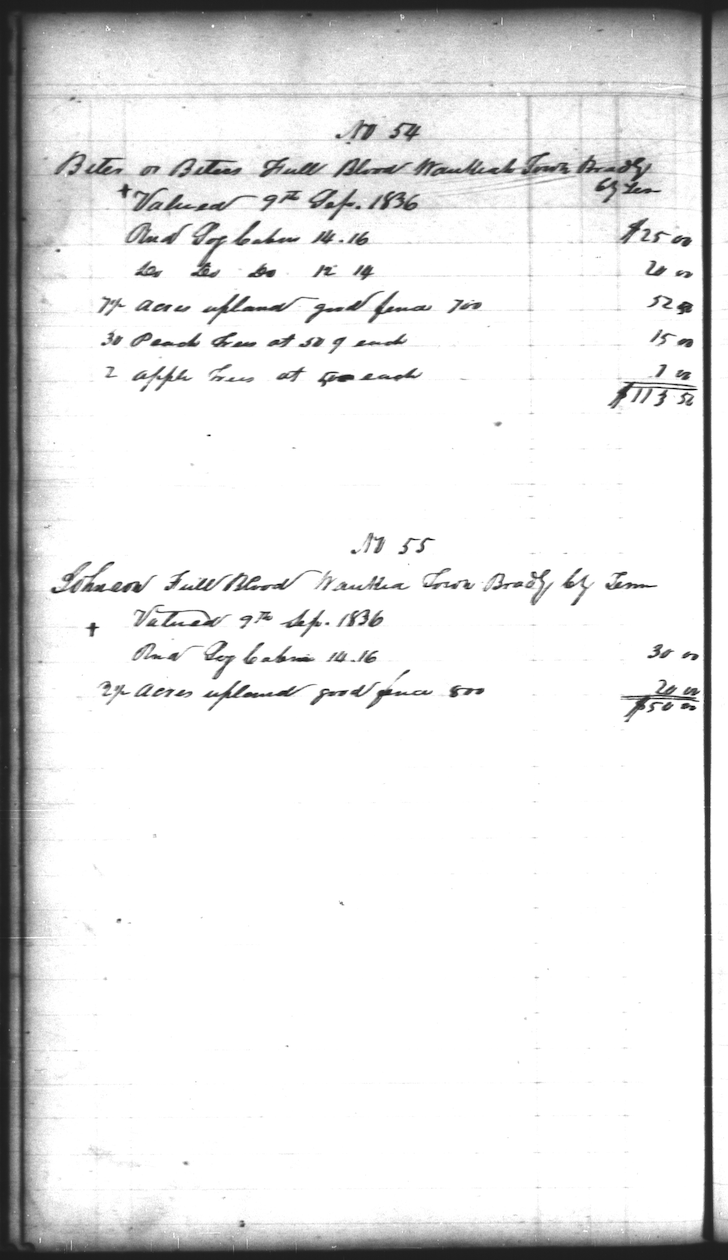 No 54
Biter or Biters Full Blood Waukiah Town Bradly
Cty Ten
+ Valued 9th Sep. 1836
Rnd Log Cabin 14.16 $25 00
Do Do Do 12 14 20 00
7½ Acres upland good fence 700 52 50
30 Peach Trees at 50 ¢ each 15 00
2 apple Trees at 50 each 1 00
$113 50
No 55
Johnson Full Blood Waukia Town Bradly Cty Tenn
+ Valued 9th Sep. 1836
Rnd Log Cabin 14.16 30 00
2½ Acres upland good fence 800 20 00
$50 00